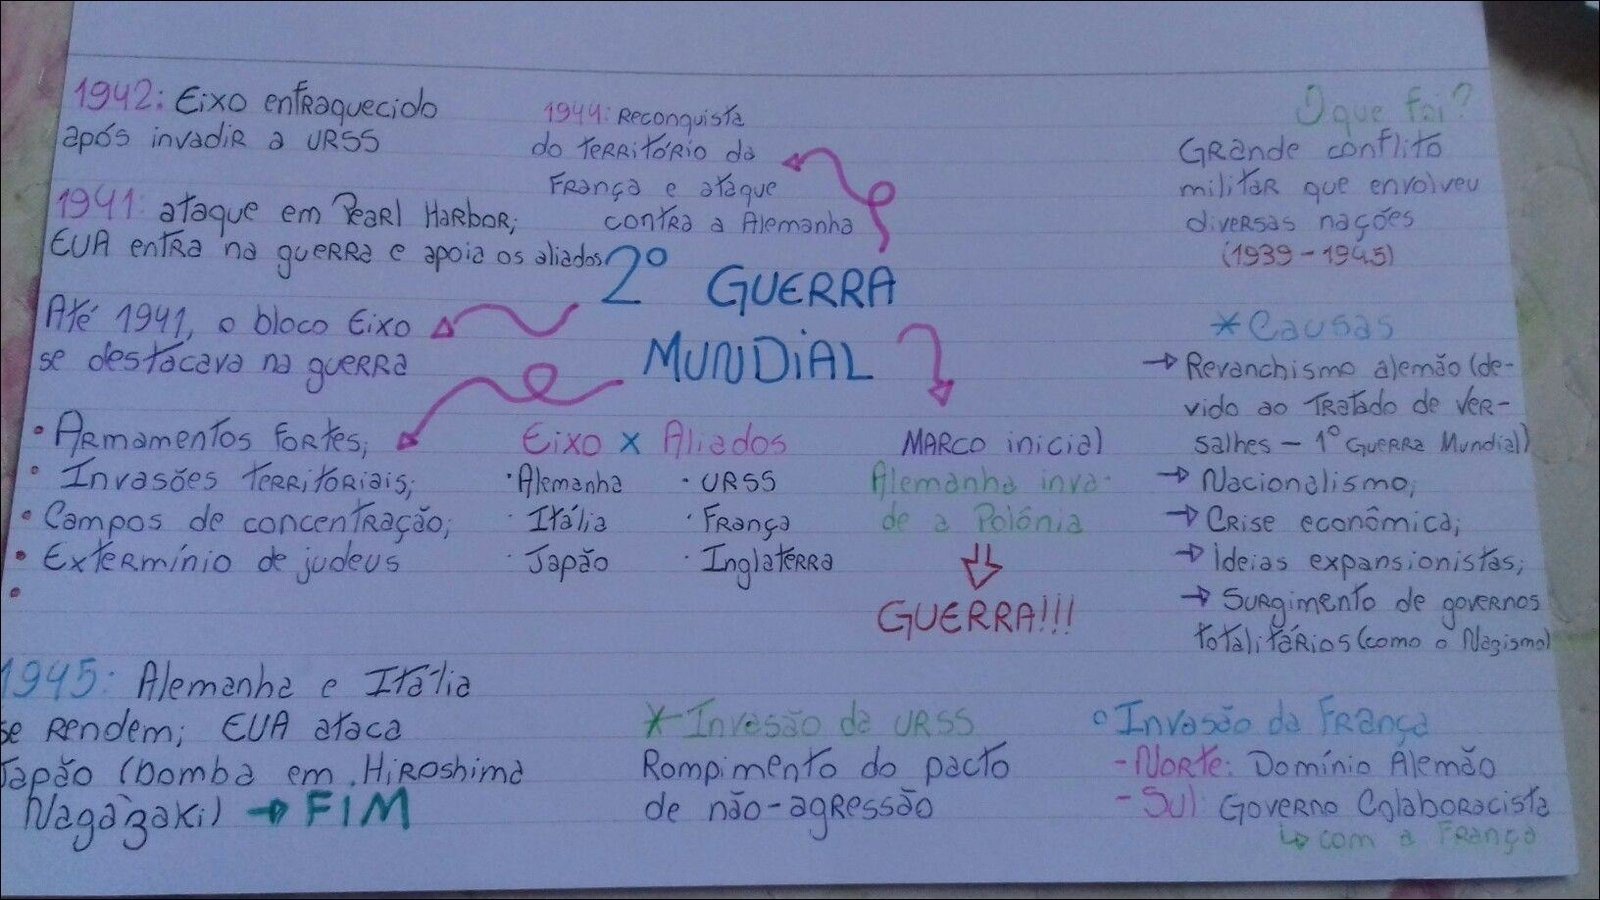 1942: Eixo enfraquecido
após invadir a URSS
1941: ataque em Pearl Harbor;
EUA entra na guerra e apoia os aliados
Até 1941, o bloco Eixo
se destacava na guerra
• Armamentos fortes;
• Invasões territoriais;
• Campos de concentração;
• Extermínio de judeus
•
1944: Reconquista
do território da
França e ataque
contra a Alemanha
2º GUERRA
MUNDIAL
Eixo x Aliados
· Alemanha · URSS
· Itália · França
· Japão · Inglaterra
MARCO inicial
Alemanha inva-
de a Polónia
GUERRA!!!
O que foi?
Grande conflito
militar que envolveu
diversas nações
(1939 - 1945)
* Causas
→ Revanchismo alemão (de-
vido ao Tratado de Ver-
salhes - 1º Guerra Mundial)
→ Nacionalismo;
→ Crise econômica;
→ Ideias expansionistas;
→ Surgimento de governos
totalitários (como o Nazismo)
1945: Alemanha e Itália
se rendem; EUA ataca
Japão (bomba em Hiroshima
Nagazaki) → FIM
* Invasão da URSS
Rompimento do pacto
de não-agressão
° Invasão da França
- Norte: Domínio Alemão
- Sul: Governo Colaboracista
↳ com a França